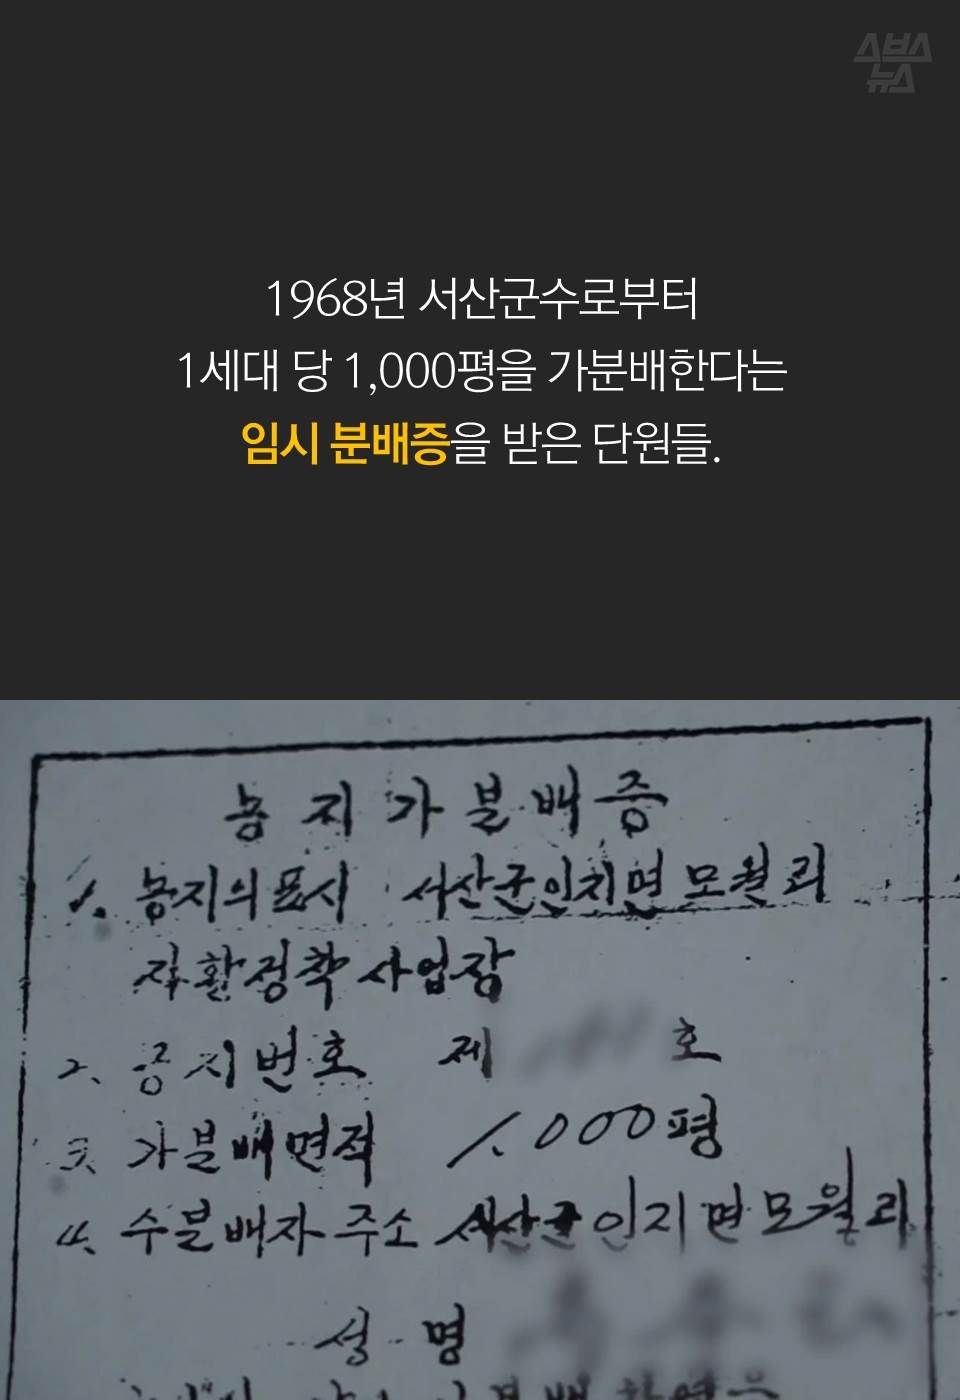 스브스
뉴스
1968년 서산군수로부터
1세대 당 1,000평을 가분배한다는
임시 분배증을 받은 단원들.
농지가분배증
1. 농지의표시 서산군인지면모월리
자활정착사업장
2. 공시번호 제 호
3. 가분배면적 1.000평
4. 수분배자주소 서산군인지면모월리
성명